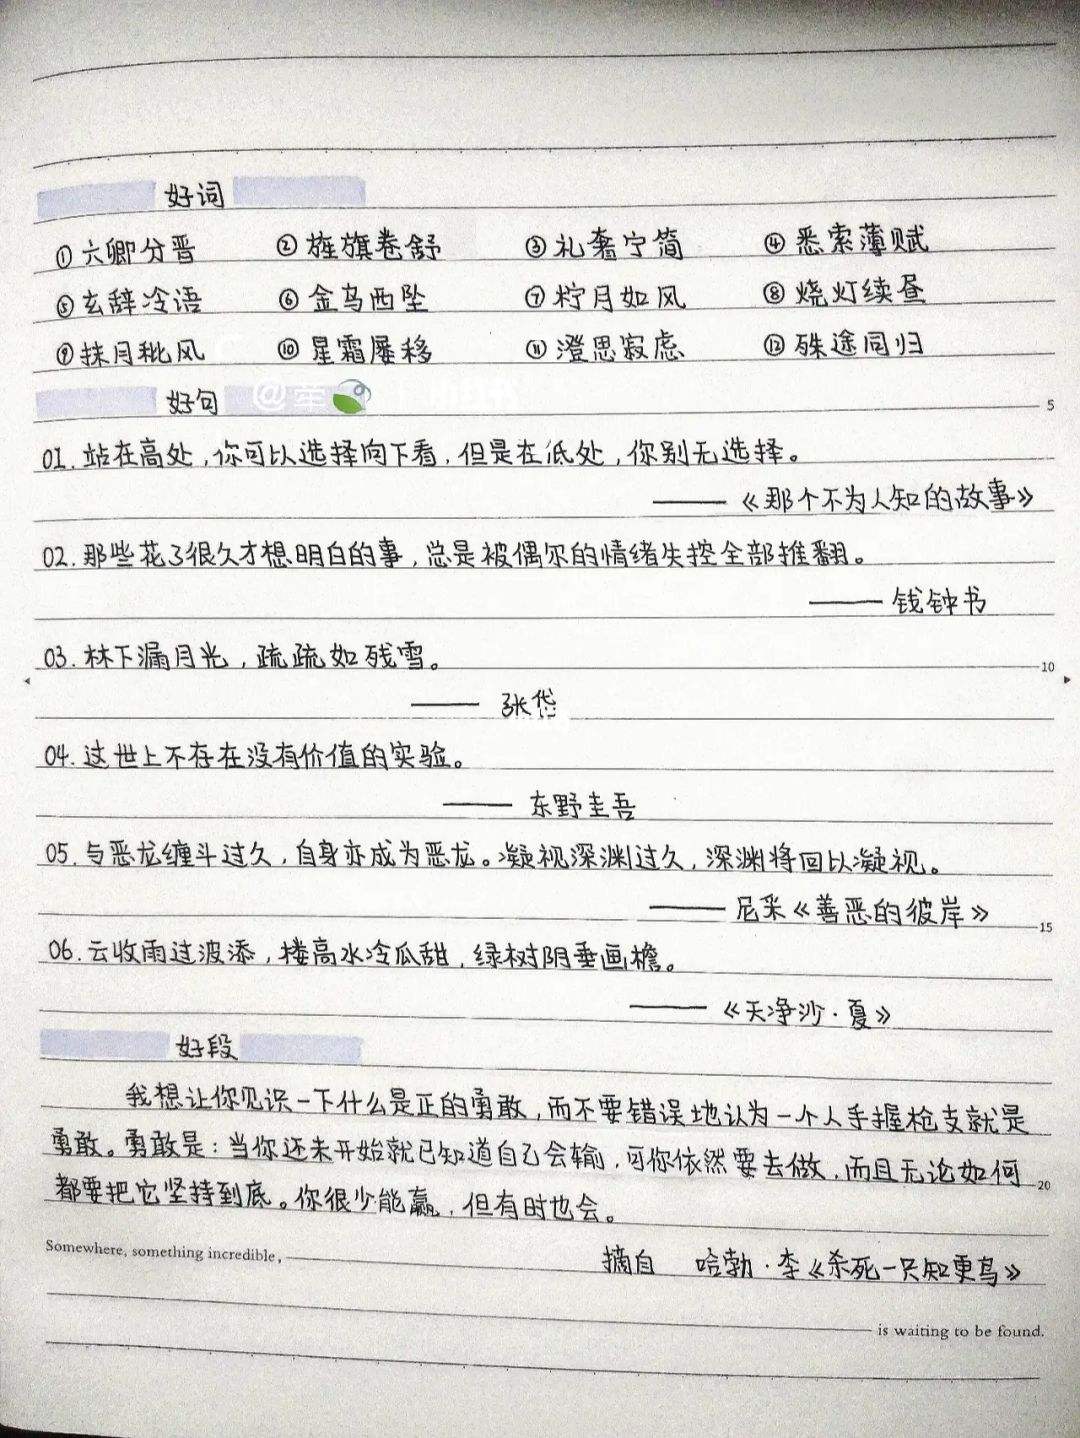 好词
①六卿分晋 ②旌旗卷舒 ③礼奢宁简 ④悉索薄赋
⑤玄辞冷语 ⑥金乌西坠 ⑦柠月如风 ⑧烧灯续昼
⑨抹月秕风 ⑩星霜屡移 ⑪澄思寂虑 ⑫殊途同归
好句
5
01.站在高处,你可以选择向下看,但是在低处,你别无选择。
——《那个不为人知的故事》
02.那些花了很久才想明白的事,总是被偶尔的情绪失控全部推翻。
——钱钟书
03.林下漏月光,疏疏如残雪。
10
—— 张岱
04.这世上不存在没有价值的实验。
—— 东野圭吾
05.与恶龙缠斗过久,自身亦成为恶龙。凝视深渊过久,深渊将回以凝视。
——尼采《善恶的彼岸》
15
06.云收雨过波添,楼高水冷瓜甜,绿树阴垂画檐。
——《天净沙·夏》
好段
我想让你见识一下什么是正的勇敢,而不要错误地认为一个人手握枪支就是
勇敢。勇敢是:当你还未开始就已知道自己会输,可你依然要去做,而且无论如何
20
都要把它坚持到底。你很少能赢,但有时也会。
Somewhere, something incredible,
摘自 哈勃·李《杀死一只知更鸟》
is waiting to be found.